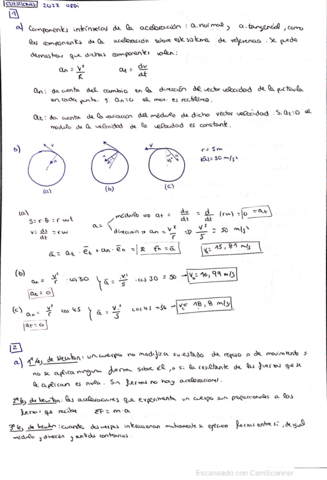 CUESTIONES 2022
1
a) Componentes intrínsecas de la aceleración: a.normal, y a.tangencial, como
las componentes de la aceleración sobre este sistema de referencia. Se puede
demostrar que dichas componentes valen:
an = v²/R at = dv/dt
An: da cuenta del cambio en la dirección del vector velocidad de la partícula
en cada punto. Si an=0 el mov. es rectilíneo.
At: da cuenta de la variación del módulo de dicho vector velocidad. Si at=0 el
módulo de la velocidad es constante.
b)
(a) (b) (c)
r = 5m
(a)
S = r·θ = r·wt
v = ds/dt = rw
a = módulo → at = dv/dt = d/dt (rw) = 0 = at
dirección → an = v²/r → v²/5 = 50 m/s²
v = 15,81 m/s
(b) an = v²/r · cos30
at = 0
a = v²/5 · cos 30 = 50 → v = 16,99 m/s
(c) an = v²/r cos 45
at = 0
a = v²/5 cos 45 = 50 → v = 18,8 m/s
2
a) 1ª ley de Newton: un cuerpo no modifica su estado de reposo o de movimiento si
no se aplica ninguna fuerza sobre él, o si la resultante de las fuerzas que se
le aplican es nula. Sin fuerzas no hay aceleración.
2ª ley de Newton: las aceleraciones que experimenta un cuerpo son proporcionales a las
fuerzas que recibe ΣF = m·a
3ª ley de Newton: cuando dos cuerpos interaccionan mutuamente se ejercen fuerzas entre sí, de igual
módulo, dirección, y sentido contrario.
Escaneado con CamScanner